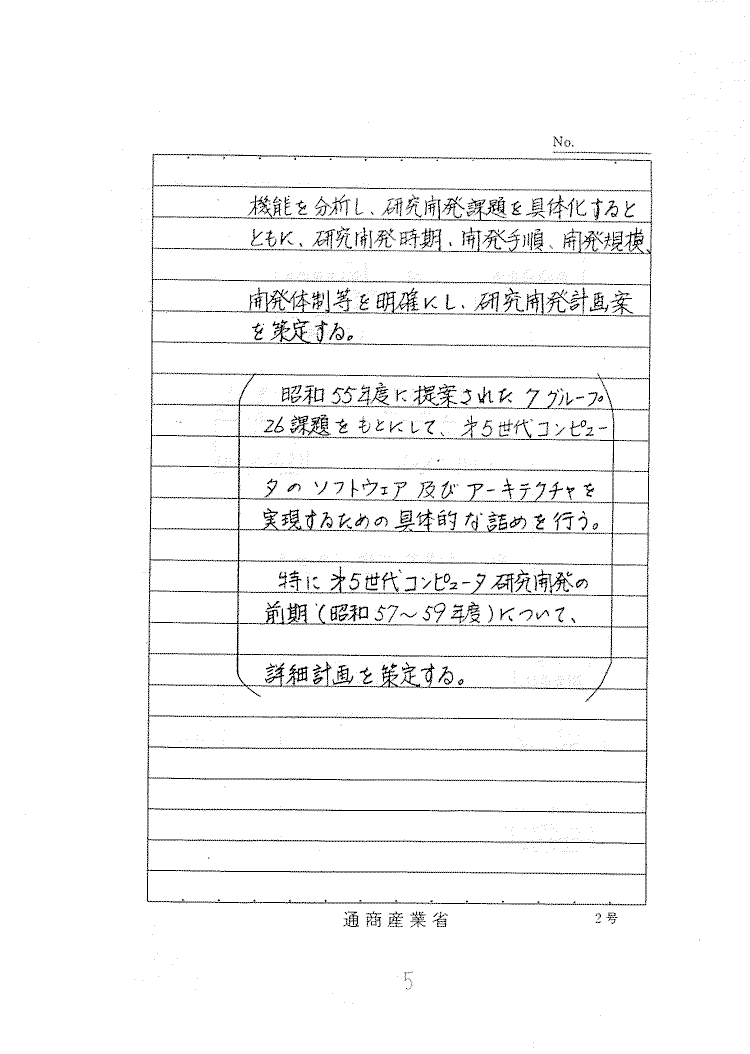 No.
機能を分析し、研究開発課題を具体化すると
ともに、研究開発時期、開発手順、開発規模、
開発体制等を明確にし、研究開発計画案
を策定する。
昭和55年度に提案された7グループ
26課題をもとにして、第5世代コンピュー
タのソフトウェア及びアーキテクチャを
実現するための具体的な詰めを行う。
特に第5世代コンピュータ研究開発の
前期(昭和57〜59年度)について、
詳細計画を策定する。
通商産業省
2号
5